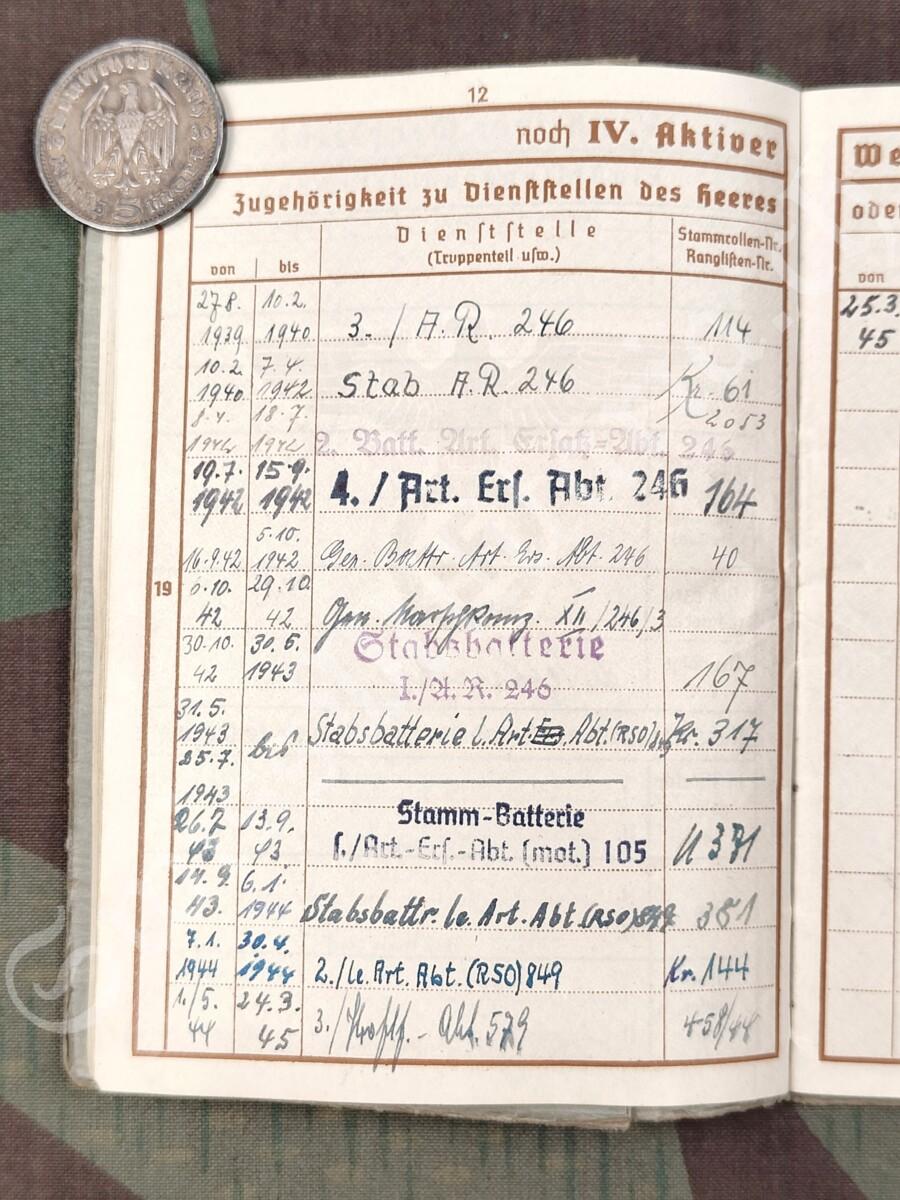 12
noch IV. Aktiver
Zugehörigkeit zu Dienststellen des Heeres
von bis Dienststelle (Truppenteil usw.) Stammrollen-Nr. Ranglisten-Nr.
27.8. 1939 10.2. 1940 3. / A.R. 246 114
10.2. 1940 7.4. 1942 Stab A.R. 246 Kr. 61
8.4. 1942 18.7. 1942 2. Batt. Art. Ersatz-Abt. 246 2053
19.7. 1942 15.9. 1942 4. / Art. Ers. Abt. 246 164
16.9.42 5.10. 1942 Gen. Battr. Art. Ers. Abt. 246 40
19
6.10. 42 29.10. 42 Gen. Marschkomp. XII/246/3
30.10. 42 30.5. 1943 Stabsbatterie I./A.R. 246 167
31.5. 1943 Stabsbatterie l. Art. Abt. (RSO) Kr. 317
25.7. 1943 bis
26.7 43 13.9. 43 Stamm-Batterie
/Art.-Ers.-Abt. (mot.) 105 371
14.9. 43. 6.1. 1944 Stabsbattr. le. Art. Abt. (RSO) 849 351
7.1. 1944 30.4. 1944 2./le. Art. Abt. (RSO) 849 Kr. 144
1./5. 44 24.3. 45 3./ Abt. 579 458/44
We
oder
von
25.3.
45